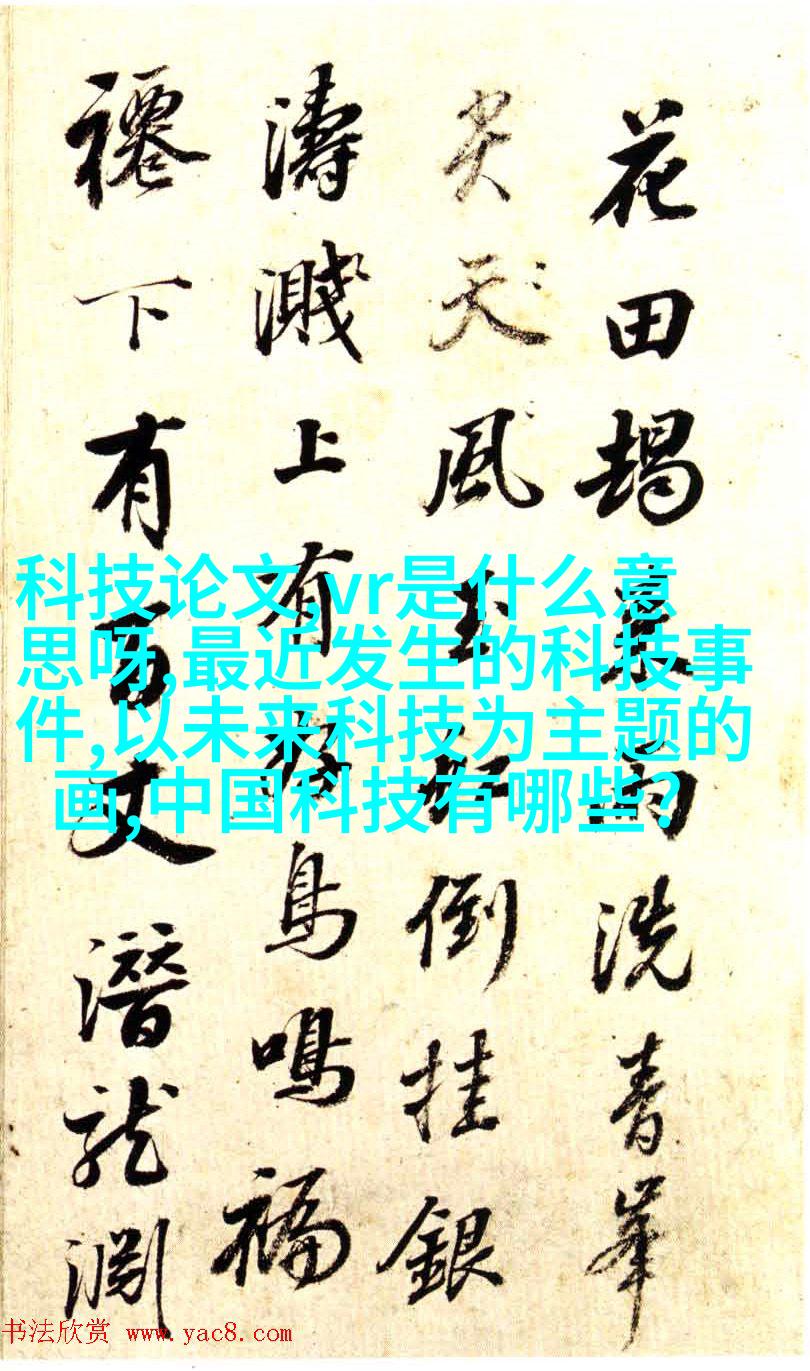 花田暮雨洗青峯
尖天風玉虹倒挂銀
濤濺上有好鳥鳴福
下有百丈潛龍淵
科技论文,vr是什么意
思呀,最近发生的科技事
件,以未来科技为主题的
画,中国科技有哪些?
书法欣赏 www.yac8.com